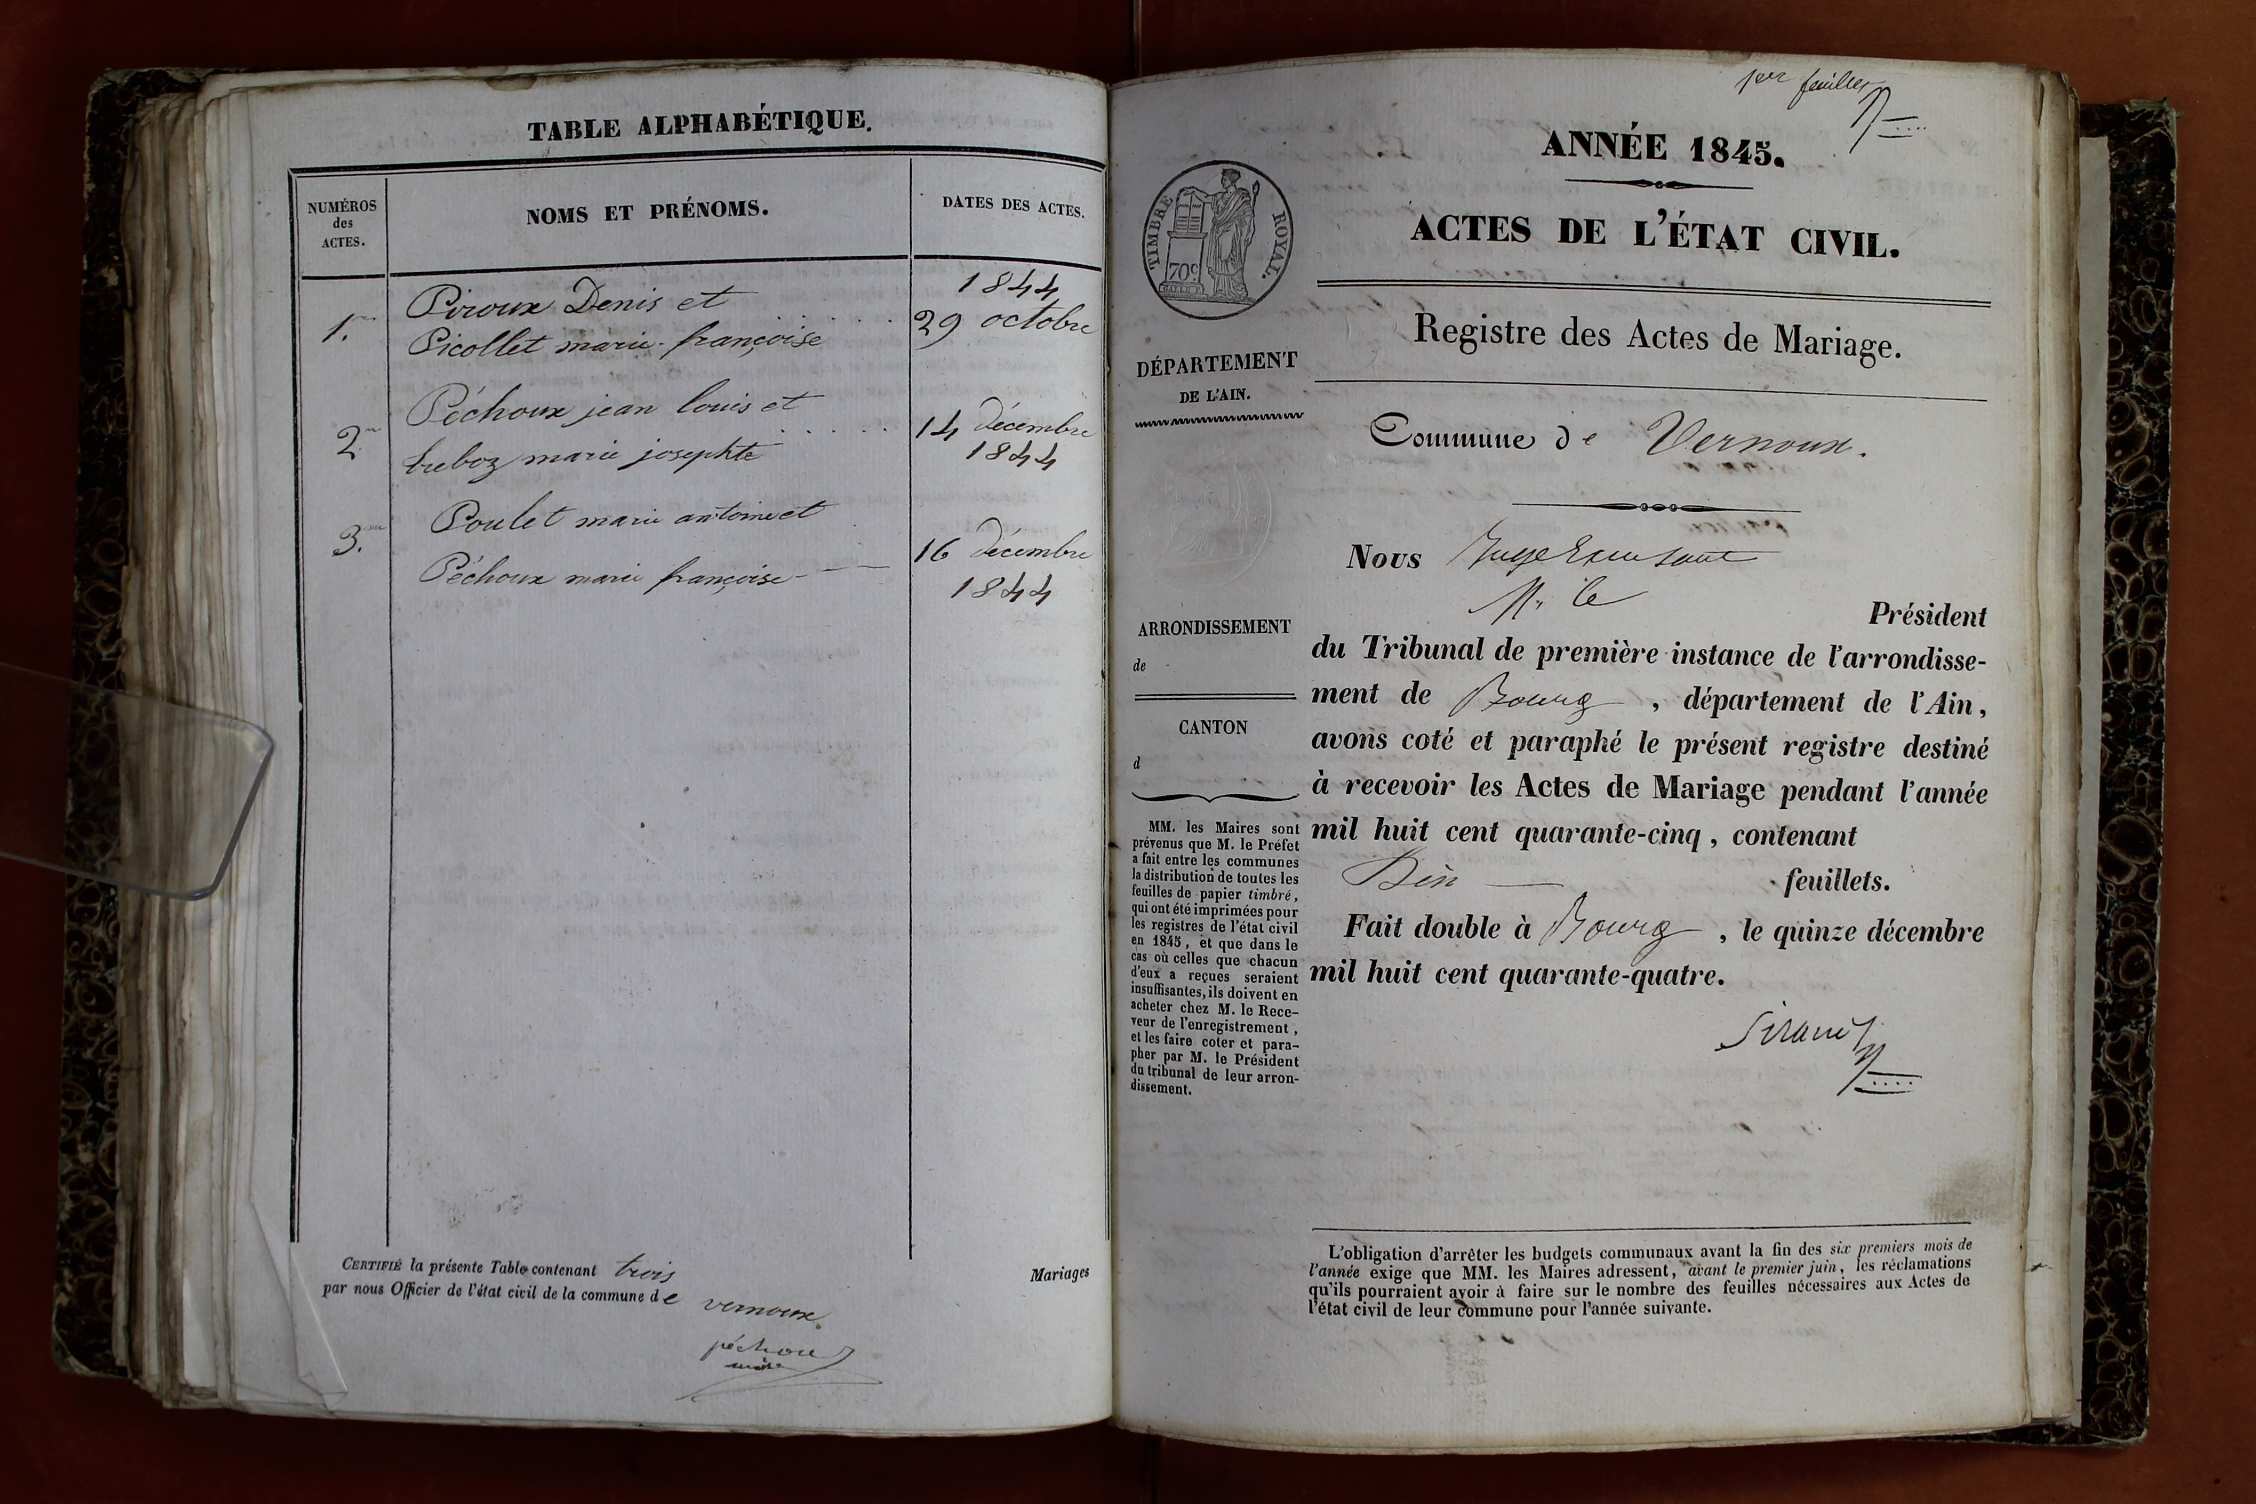 TABLE ALPHABÉTIQUE.
NUMÉROS
des
ACTES.
NOMS ET PRÉNOMS.
DATES DES ACTES.
1.
Piroux Denis et
Picollet marie-françoise
1844
29 octobre
2
Péchoux jean louis et
treboz marie josephte
14 décembre
1844
3.
Poulet marie antoine et
Péchoux marie françoise
16 décembre
1844
CERTIFIÉ la présente Table contenant trois
Mariages
par nous Officier de l'état civil de la commune de vernoux.
péchoux
maire
1er feuillet
ANNÉE 1845.
ACTES DE L'ÉTAT CIVIL.
TIMBRE ROYAL.
70c
Registre des Actes de Mariage.
DÉPARTEMENT
DE L'AIN.
Commune de Vernoux.
ARRONDISSEMENT
de
CANTON
d
MM. les Maires sont
prévenus que M. le Préfet
a fait entre les communes
la distribution de toutes les
feuilles de papier timbré,
qui ont été imprimées pour
les registres de l'état civil
en 1845, et que dans le
cas où celles que chacun
d'eux a reçues seraient
insuffisantes, ils doivent en
acheter chez M. le Rece-
veur de l'enregistrement,
et les faire coter et para-
pher par M. le Président
du tribunal de leur arron-
dissement.
Nous Juge
M. le
Président
du Tribunal de première instance de l'arrondisse-
ment de Bourg, département de l'Ain,
avons coté et paraphé le présent registre destiné
à recevoir les Actes de Mariage pendant l'année
mil huit cent quarante-cinq, contenant
feuillets.
Fait double à Bourg, le quinze décembre
mil huit cent quarante-quatre.
L'obligation d'arrêter les budgets communaux avant la fin des six premiers mois de
l'année exige que MM. les Maires adressent, avant le premier juin, les réclamations
qu'ils pourraient avoir à faire sur le nombre des feuilles nécessaires aux Actes de
l'état civil de leur commune pour l'année suivante.